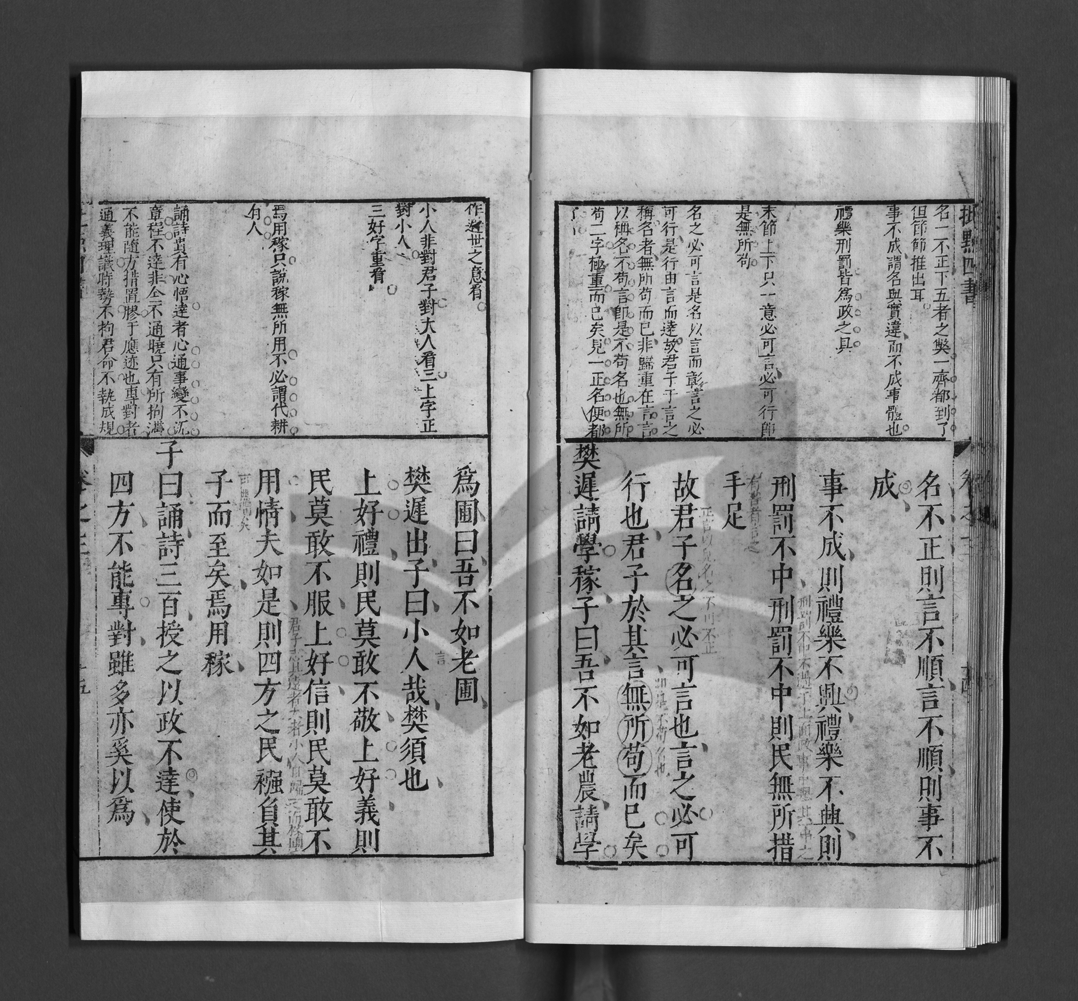 名一不正下五者之獘一齊都到了
但節節推出耳
事不成謂名與實違而不成事體也
禮樂刑罰皆爲政之具
末節上下只一意必可言必可行卽
是無所苟
名之必可言是名以言而彰言之必
可行是行由言而達故君子于言之
稱名者無所苟而已非歸重在言言
以稱名不苟言卽是不苟名也無所
苟二字極重而已矣見一正名便都
了
名不正則言不順言不順則事不
成
事不成則禮樂不興禮樂不興則
刑罰不中刑罰不中則民無所措
手足
故君子名之必可言也言之必可
行也君子於其言無所苟而已矣
樊遲請學稼子曰吾不如老農請學
作遯世之意看
小人非對君子對大人看三上字正
對小人
三好字重看
焉用稼只說稼無所用不必謂代耕
有人
誦詩貴有心悟達者心通事變不沉
章程不達非全不通曉只有所拘滯
不能隨方措置膠于應迹也專對者
通義理識時勢不拘君命不執成規
爲圃曰吾不如老圃
樊遲出子曰小人哉樊須也
上好禮則民莫敢不敬上好義則
民莫敢不服上好信則民莫敢不
用情夫如是則四方之民襁負其
子而至矣焉用稼
子曰誦詩三百授之以政不達使於
四方不能專對雖多亦奚以爲